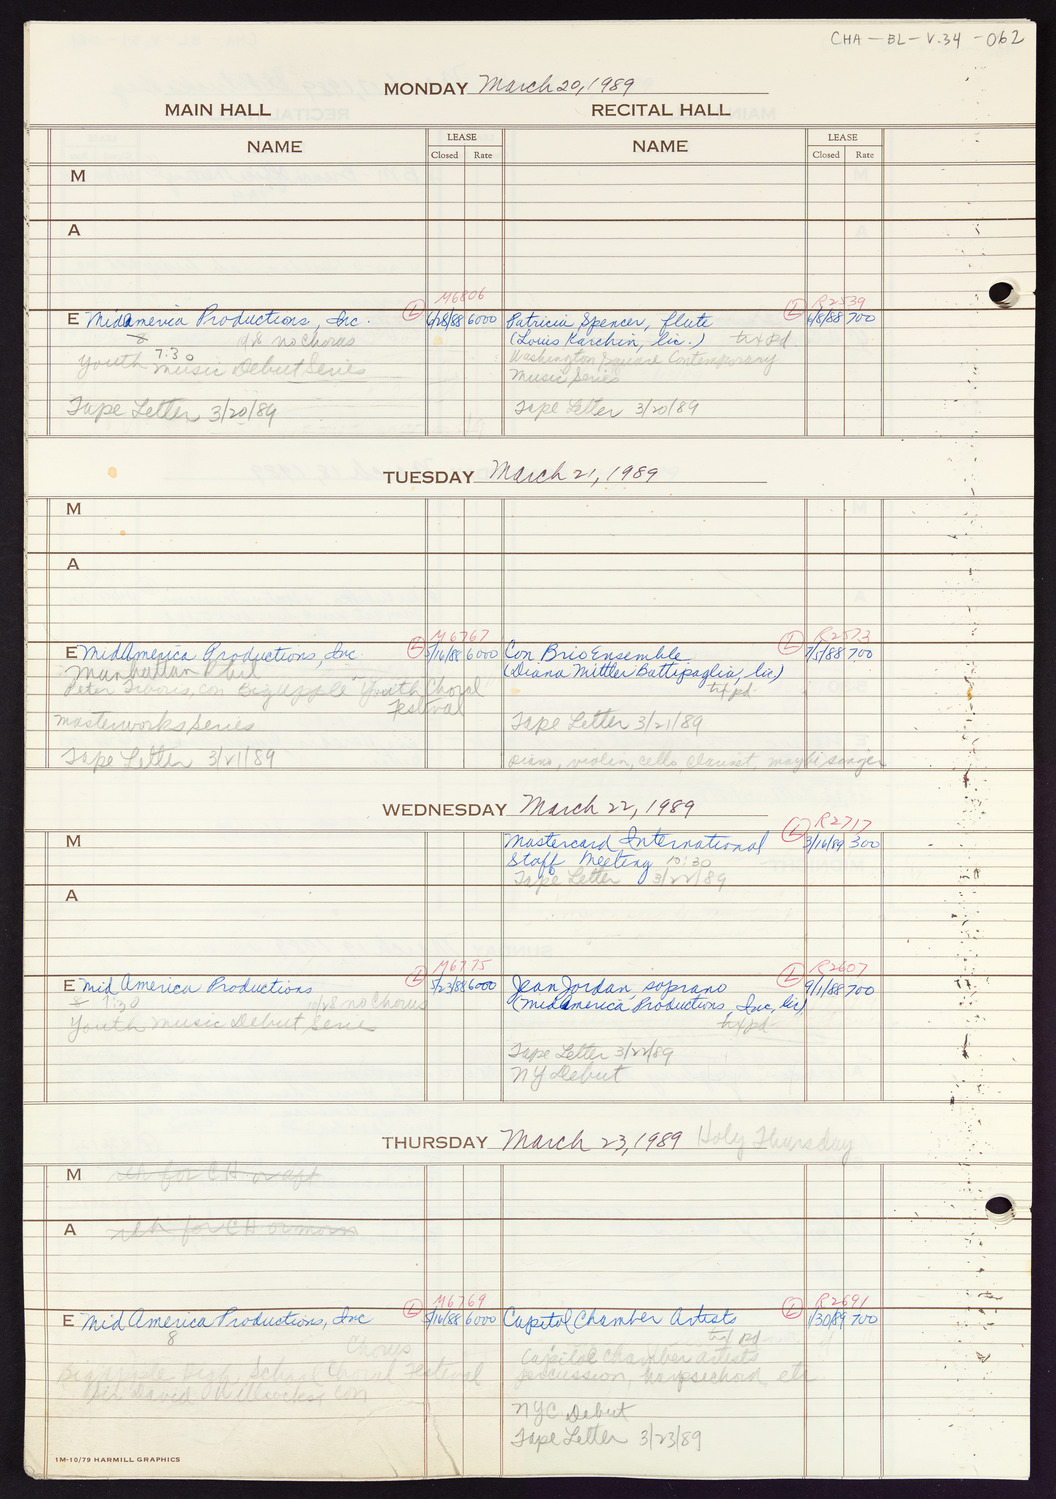 CHA-BL-V.34-062
MONDAY March 20, 1989
MAIN HALL
RECITAL HALL
NAME
LEASE
Closed Rate
NAME
LEASE
Closed Rate
M
A
M6806
E MidAmerica Productions, Inc. L 6/28/88 6000
8 no Chorus
7:30
Youth Music Debut Series
Tape Letter 3/20/89
R2539
Patricia Spencer, flute L 6/8/88 700
(Louis Karchin, lic.) txpd.
Washington Square Contemporary
Music Series
Tape Letter 3/20/89
TUESDAY March 21, 1989
M
A
M6767
E MidAmerica Productions, Inc L 5/16/88 6000
Manhattan Phil
Peter Tiboris, con Big Apple Youth Choral
Festival
Masterworks Series
Tape Letter 3/21/89
R2573
Con Brio Ensemble L 7/5/88 700
(Diana Mittler Battipaglia, lic)
txpd.
Tape Letter 3/21/89
piano, violin, cello, clarinet, maybe singer
WEDNESDAY March 22, 1989
M
R2717
Mastercard International L 3/16/89 300
Staff Meeting 10:30
Tape Letter 3/22/89
A
M6775
E Mid America Productions L 5/23/88 6000
8 7:30 no Chorus
Youth Music Debut Serie
R2607
Jean Jordan soprano L 9/1/88 700
(MidAmerica Productions, Inc, lic)
txpd
Tape Letter 3/22/89
NY Debut
THURSDAY March 23, 1989 Holy Thursday
M reh for CH or aft
A reh for CH or morn
M6769
E Mid America Productions, Inc L 5/16/88 6000
8
Chorus
Big Apple High School Choral Festival
Sir David Willcocks, con
R2691
Capitol Chamber Artists L 1/30/89 700
txpd
Capitol Chamber Artists
percussion, harpsichord etc
NYC Debut
Tape Letter 3/23/89
1M-10/79 HARMILL GRAPHICS